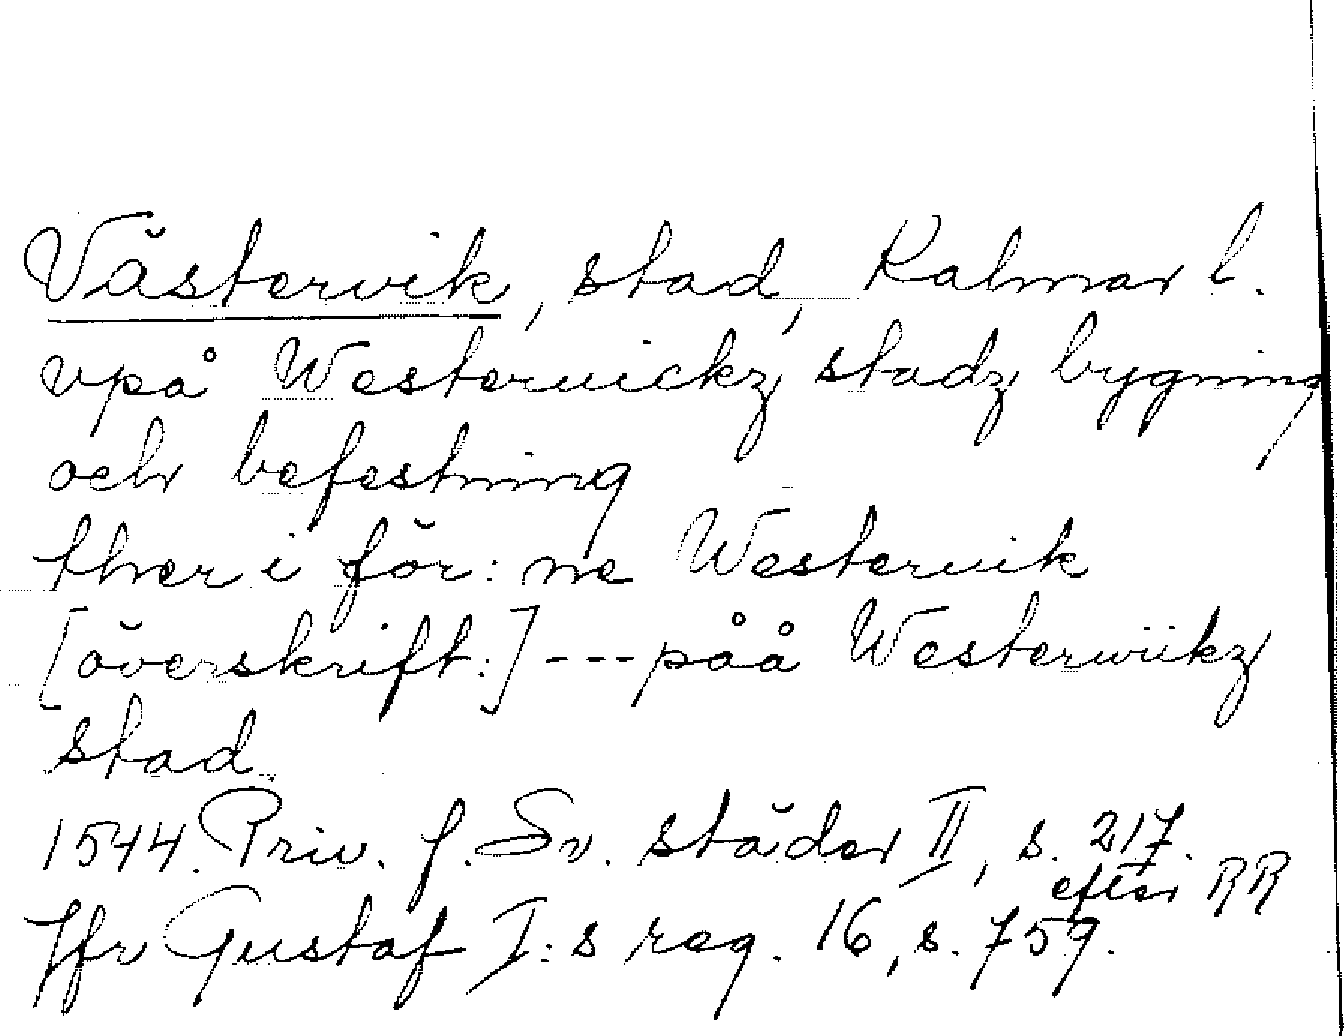 Västervik, stad, Kalmar l.
vpå Westervickz stadz bygning
och befestning
ther i för: ne Westervik
[överskrift:] --- påå Westerwiikz
stad
1544. Priv. f. Sv. städer II, s. 217.
efter RR
Jfr Gustaf I:s reg. 16, s. 759.